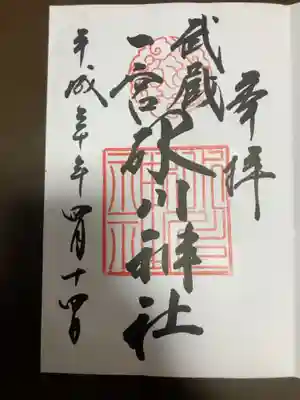 奉拝
武蔵
一宮
氷川神社
平成三十年四月十四日